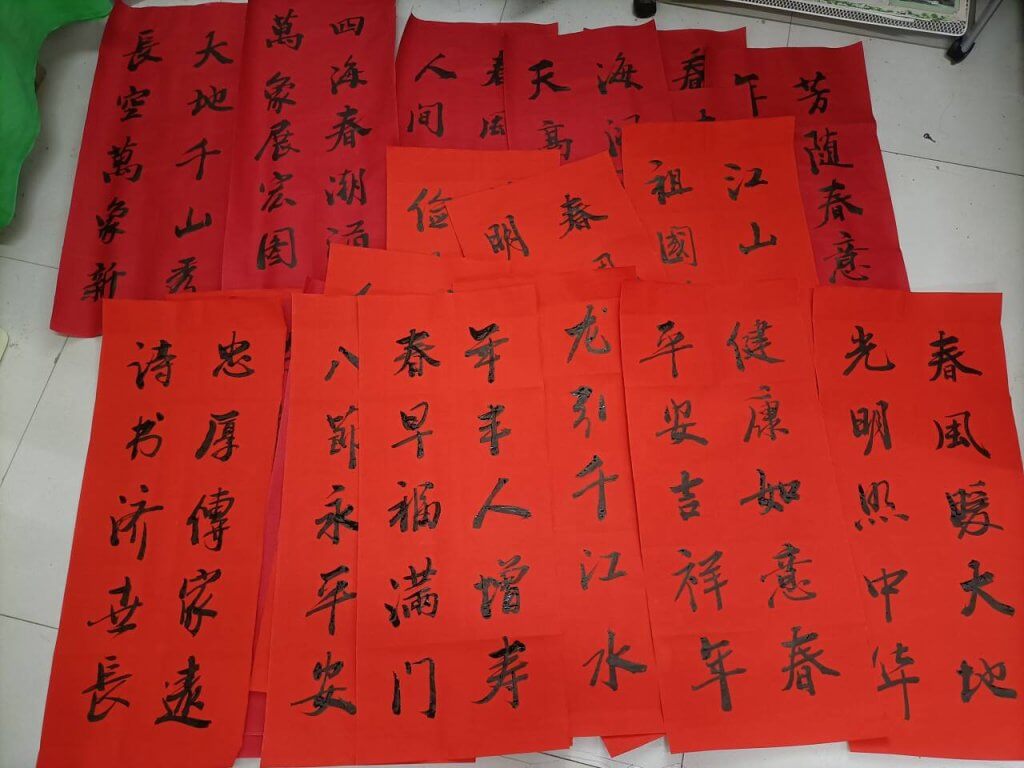 大地千山秀
長空萬象新
四海春潮
萬象展宏图
春
人间
海阔
天高
春
芳随春意
俭
春
明
江山
祖國
忠厚傳家遠
诗书济世長
八節永平安
年丰人增寿
春早福满门
龙引千江水
健康如意春
平安吉祥年
春風暖大地
光明照中华